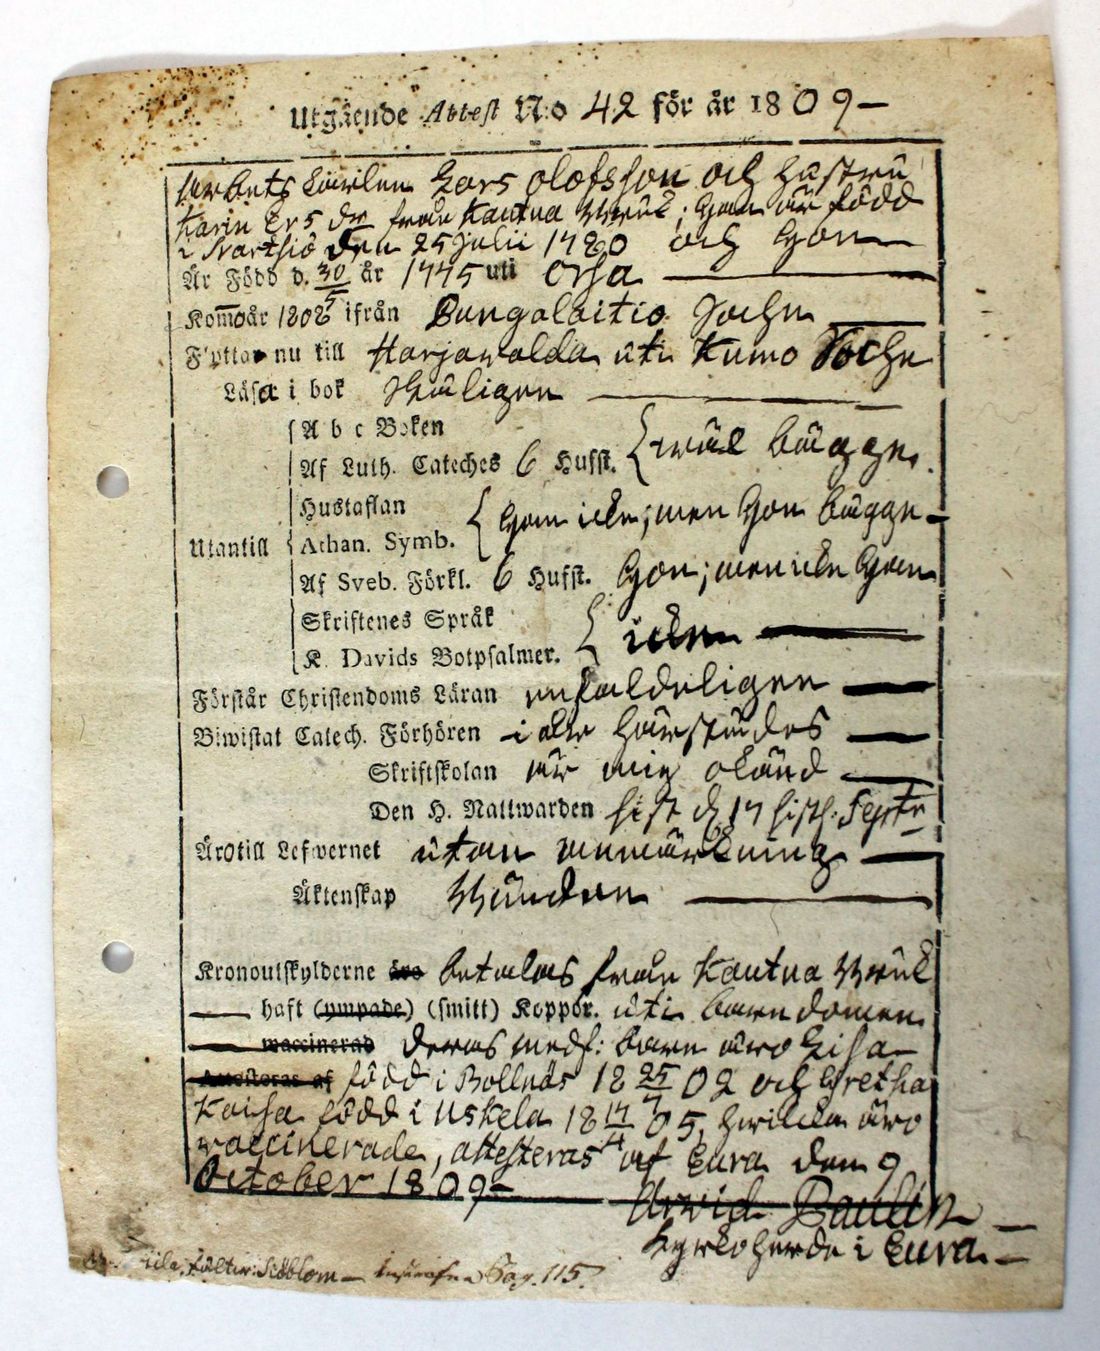 Utgående Attest N:o 42 för år 1809 –
Arbets Carlen Lars Olofsson och hustru
Karin Ers dr från Kautua Bruk; han är född
i Svartsiö den 25 Julii 1780 och hon
Är Född d. 30/5 år 1775 uti Orsa
Kommo år 1808 ifrån Bungalaitio Sochn
Flyttar nu till Harjawalda uti Kumo Sochn
Läsa i bok skäligen
A b c Boken
Af Luth. Cateches 6 Hufst. { wäl bägge.
Hustaflan
Utantill Athan. Symb. { han icke; men hon bägge –
Af Sveb. Förkl. 6 Hufst. hon; men icke han
Skriftenes Språk
K. Davids Botpsalmer. { icke
Förstår Christendoms Läran enfaldeligen
Biwistat Catech. Förhören i alla härstädes
Skriftskolan är mig okänd
Den H. Nattwarden sist d. 17 sistl. Septr
Äro till Lefwernet utan anmärkning
Äktenskap bundna
Kronoutskylderne äro betalas från Kautua Bruk
haft (ympade) (smitt) Koppor. uti barndomen
waccinerad deras medf: barn äro Lisa
Attesteras af född i Bollnäs 18 25/7 02 och Gretha
Kaisa född i Uskela 18 14/4 05, hwilka äro
vaccinerade, attesteras af Eura den 9
October 1809 –
Arvid Paulin
Kyrkoherde i Eura. –
Siöblom – Pag. 115.